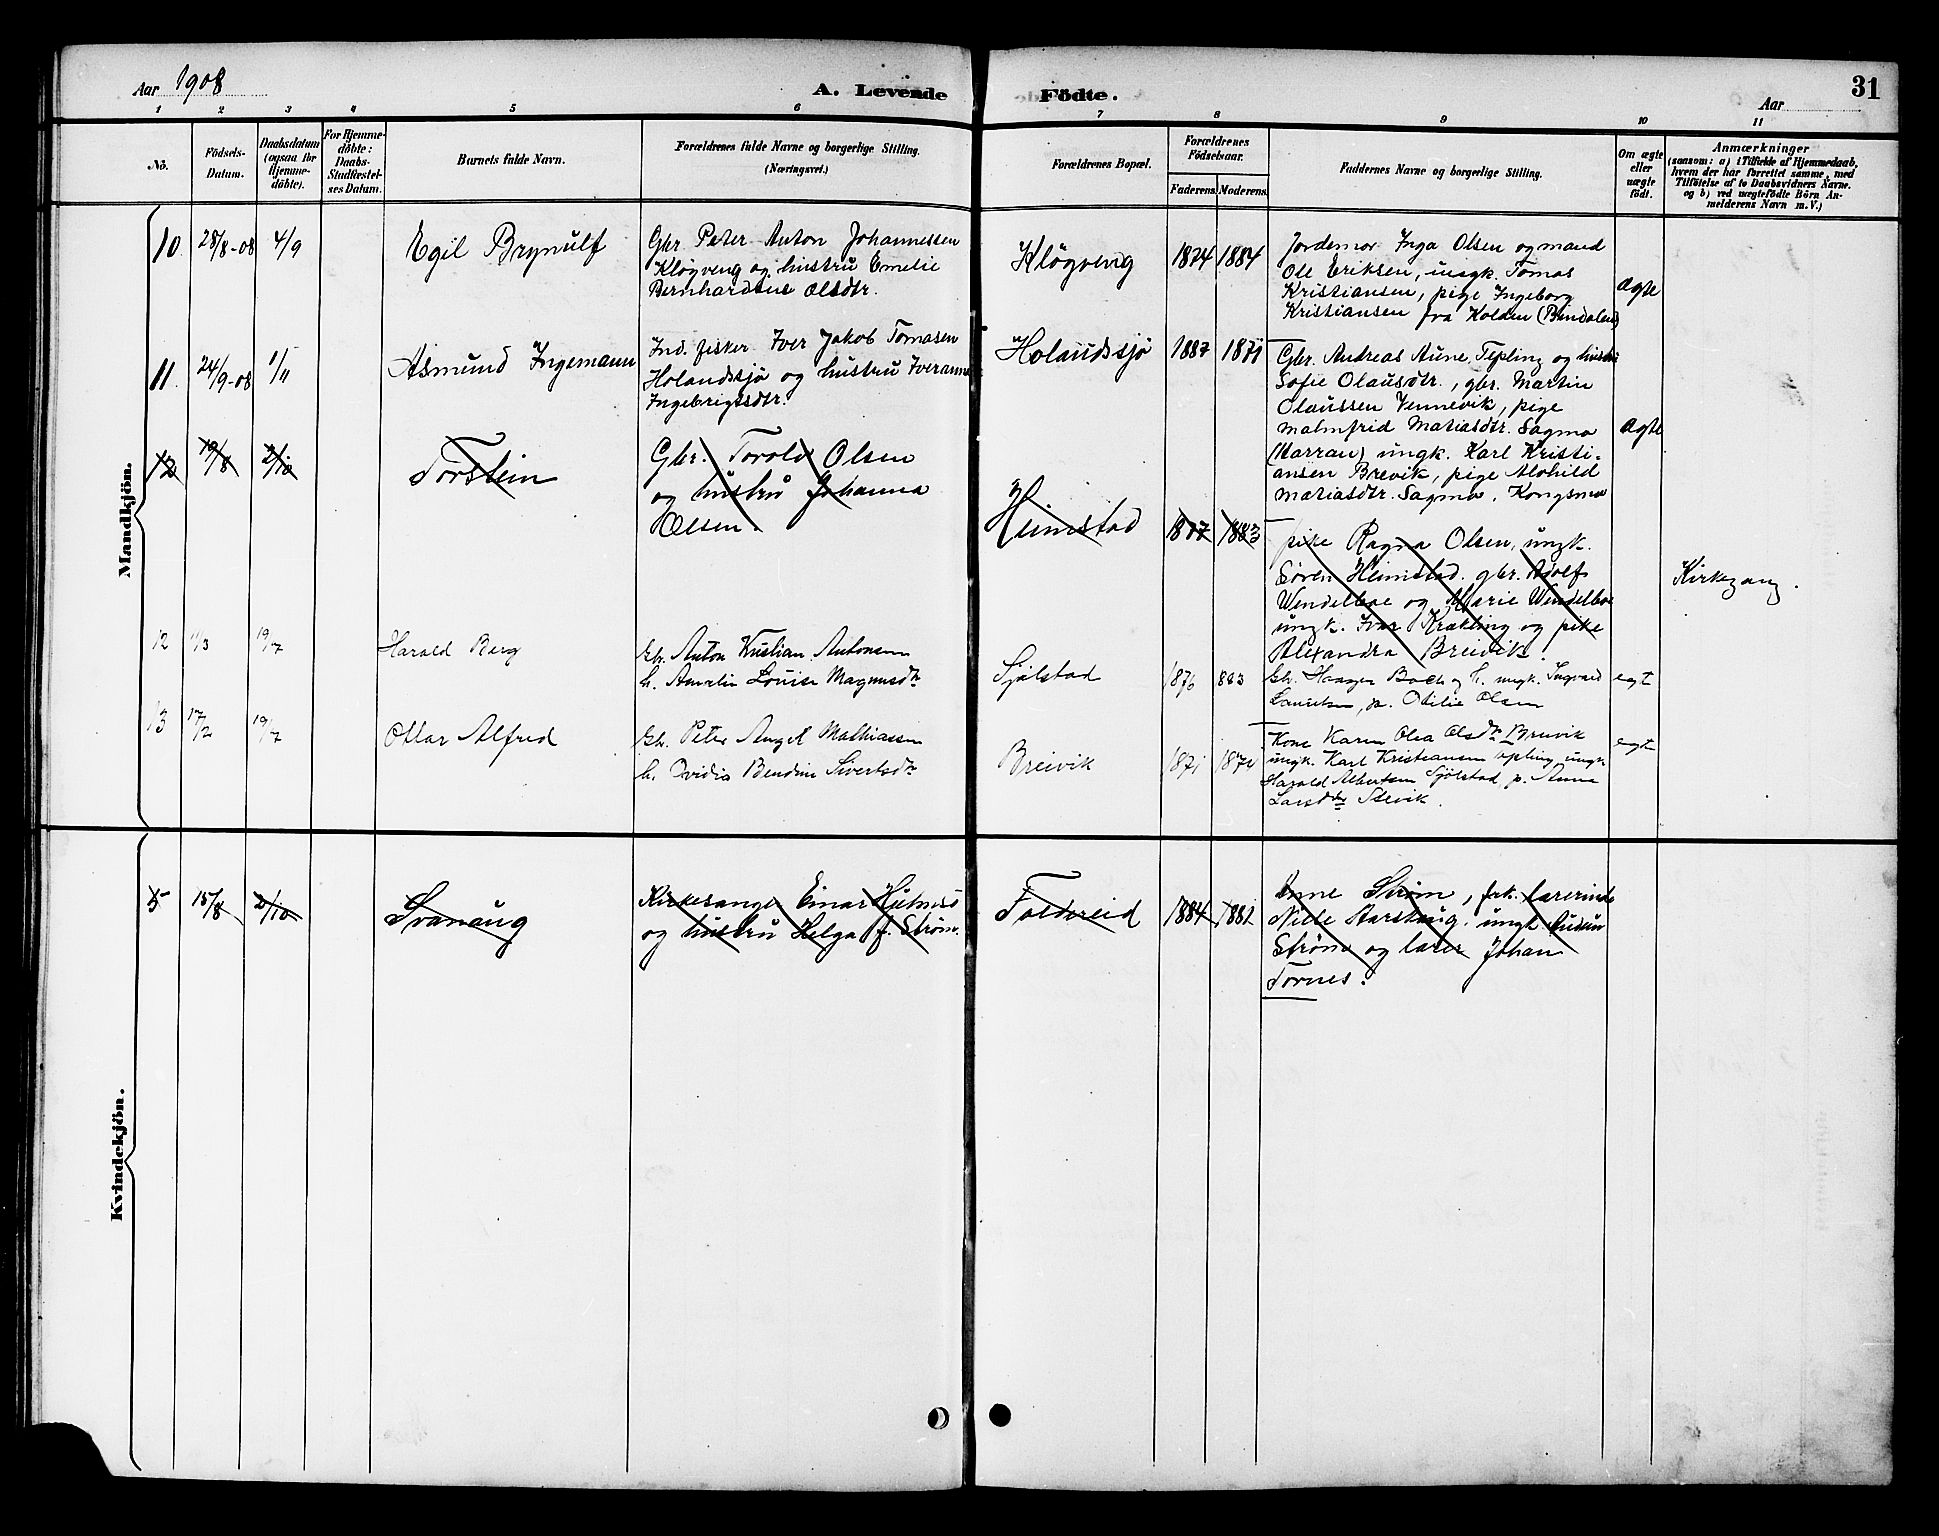 Aar 1908
A. Levende
Födte.
Aar
31
1 2 3 4 5 6 7 8 9 10 11
No.
Födsels-
Datum.
Daabsdatum
(ogsaa for
Hjemme-
döbte).
For Hjemme-
döbte:
Daabs-
Stadfæstel-
ses Datum.
Barnets fulde Navn.
Forældrenes fulde Navne og borgerlige Stilling.
(Næringsvei.)
Forældrenes Bopæl.
Forældrenes
Födselsaar.
Faderens.
Moderens.
Faddernes Navne og borgerlige Stilling.
Om ægte
eller
uægte
födt.
Anmærkninger
(saasom: a) i Tilfælde af Hjemmedaab,
hvem der har forrettet samme, med
Tilföielse af to Daabsvidners Navne.
og b) ved uægtefödte Börn An-
melderens Navn m. V.)
Mandkjön.
10. 28/8-08 4/9
Egil Brynulf
Gbr. Peter Anton Johannessen
Kløgveng og hustru Emelie
Bernhardine Olsdtr.
Kløgveng
1874 1884
Jordemor Inga Olsen og mand
Ole Eriksen, ungk. Tomas
Kristiansen, pige Ingeborg
Kristiansen fra Kolden (Bindalen)
ægte
11. 24/9-08 1/11
Asmund Ingemann
Ind. fisker Iver Jakob Tomasen
Holandssjø og hustru Iveranna
Ingebrigtsdtr.
Holandssjø
1887 1871
Gbr. Andreas Aune, Tepling og hustru
Sofie Olausdtr., gbr. Martin
Olaussen Vennevik, pige
Malmfrid Matiasdtr. Sagmo
(Harran) ungk. Karl Kristi-
ansen Breivik, pige Alohild
Matiasdtr. Sagmo, Kongsmo
ægte
12 19/8 2/10
Torstein
Gbr. Torolv Olsen
og hustru Johanna
Olsen.
Heimstad
1877 1883
pike Ragna Olsen, ungk.
Søren Heimstad. gbr. Adolf
Wendelboe og Marie Wendelboe
ungk. Ivar Krækling og pike
Alexandra Breivik.
Kirkegang.
12 11/3 19/7
Harald Berg
Gbr. Anton Kristian Antonsen
h. Amalie Louise Magnusdtr
Sjølstad
1876 883
Gbr. Haagen Bach og h. ungk. Ingvald
Lauritsen, p. Otilie Olsen
egt
13 17/2 19/7
Ottar Alfred
Gbr. Peter Angel Mathiassen
h. Ovidia Bendine Sivertsdtr
Breivik
1871 1870
Kone Karen Olea Olsdtr Breivik
ungk. Karl Kristiansen Opling, ungk
Harald Albertsen Sjølstad, p. Anna
Larsdtr Slevik.
egt
Kvindekjön.
5 15/8 2/10
Svanaug
Kirkesanger Einar Hulmsö
og hustru Helga f. Strøm.
Foldereid
1884 1882
Anne Strøm, frk. lærerinde
Nille Aarskaug, ungk. Audun
Strøm og lærer Johan
Tornes.